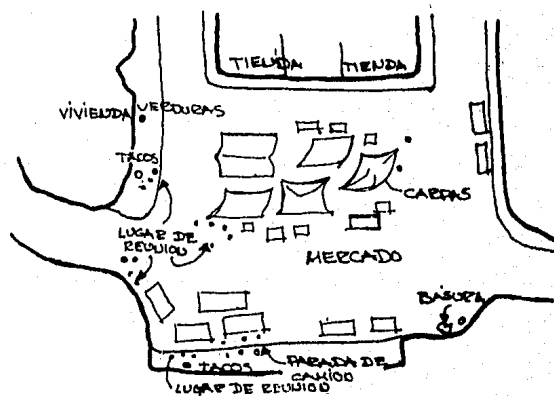 TIENDA
TIENDA
VIVIENDA
VERDURAS
TACOS
CARPAS
LUGAR DE
REUNION
MERCADO
BASURA
PARADA DE
CAMION
TACOS
LUGAR DE REUNION